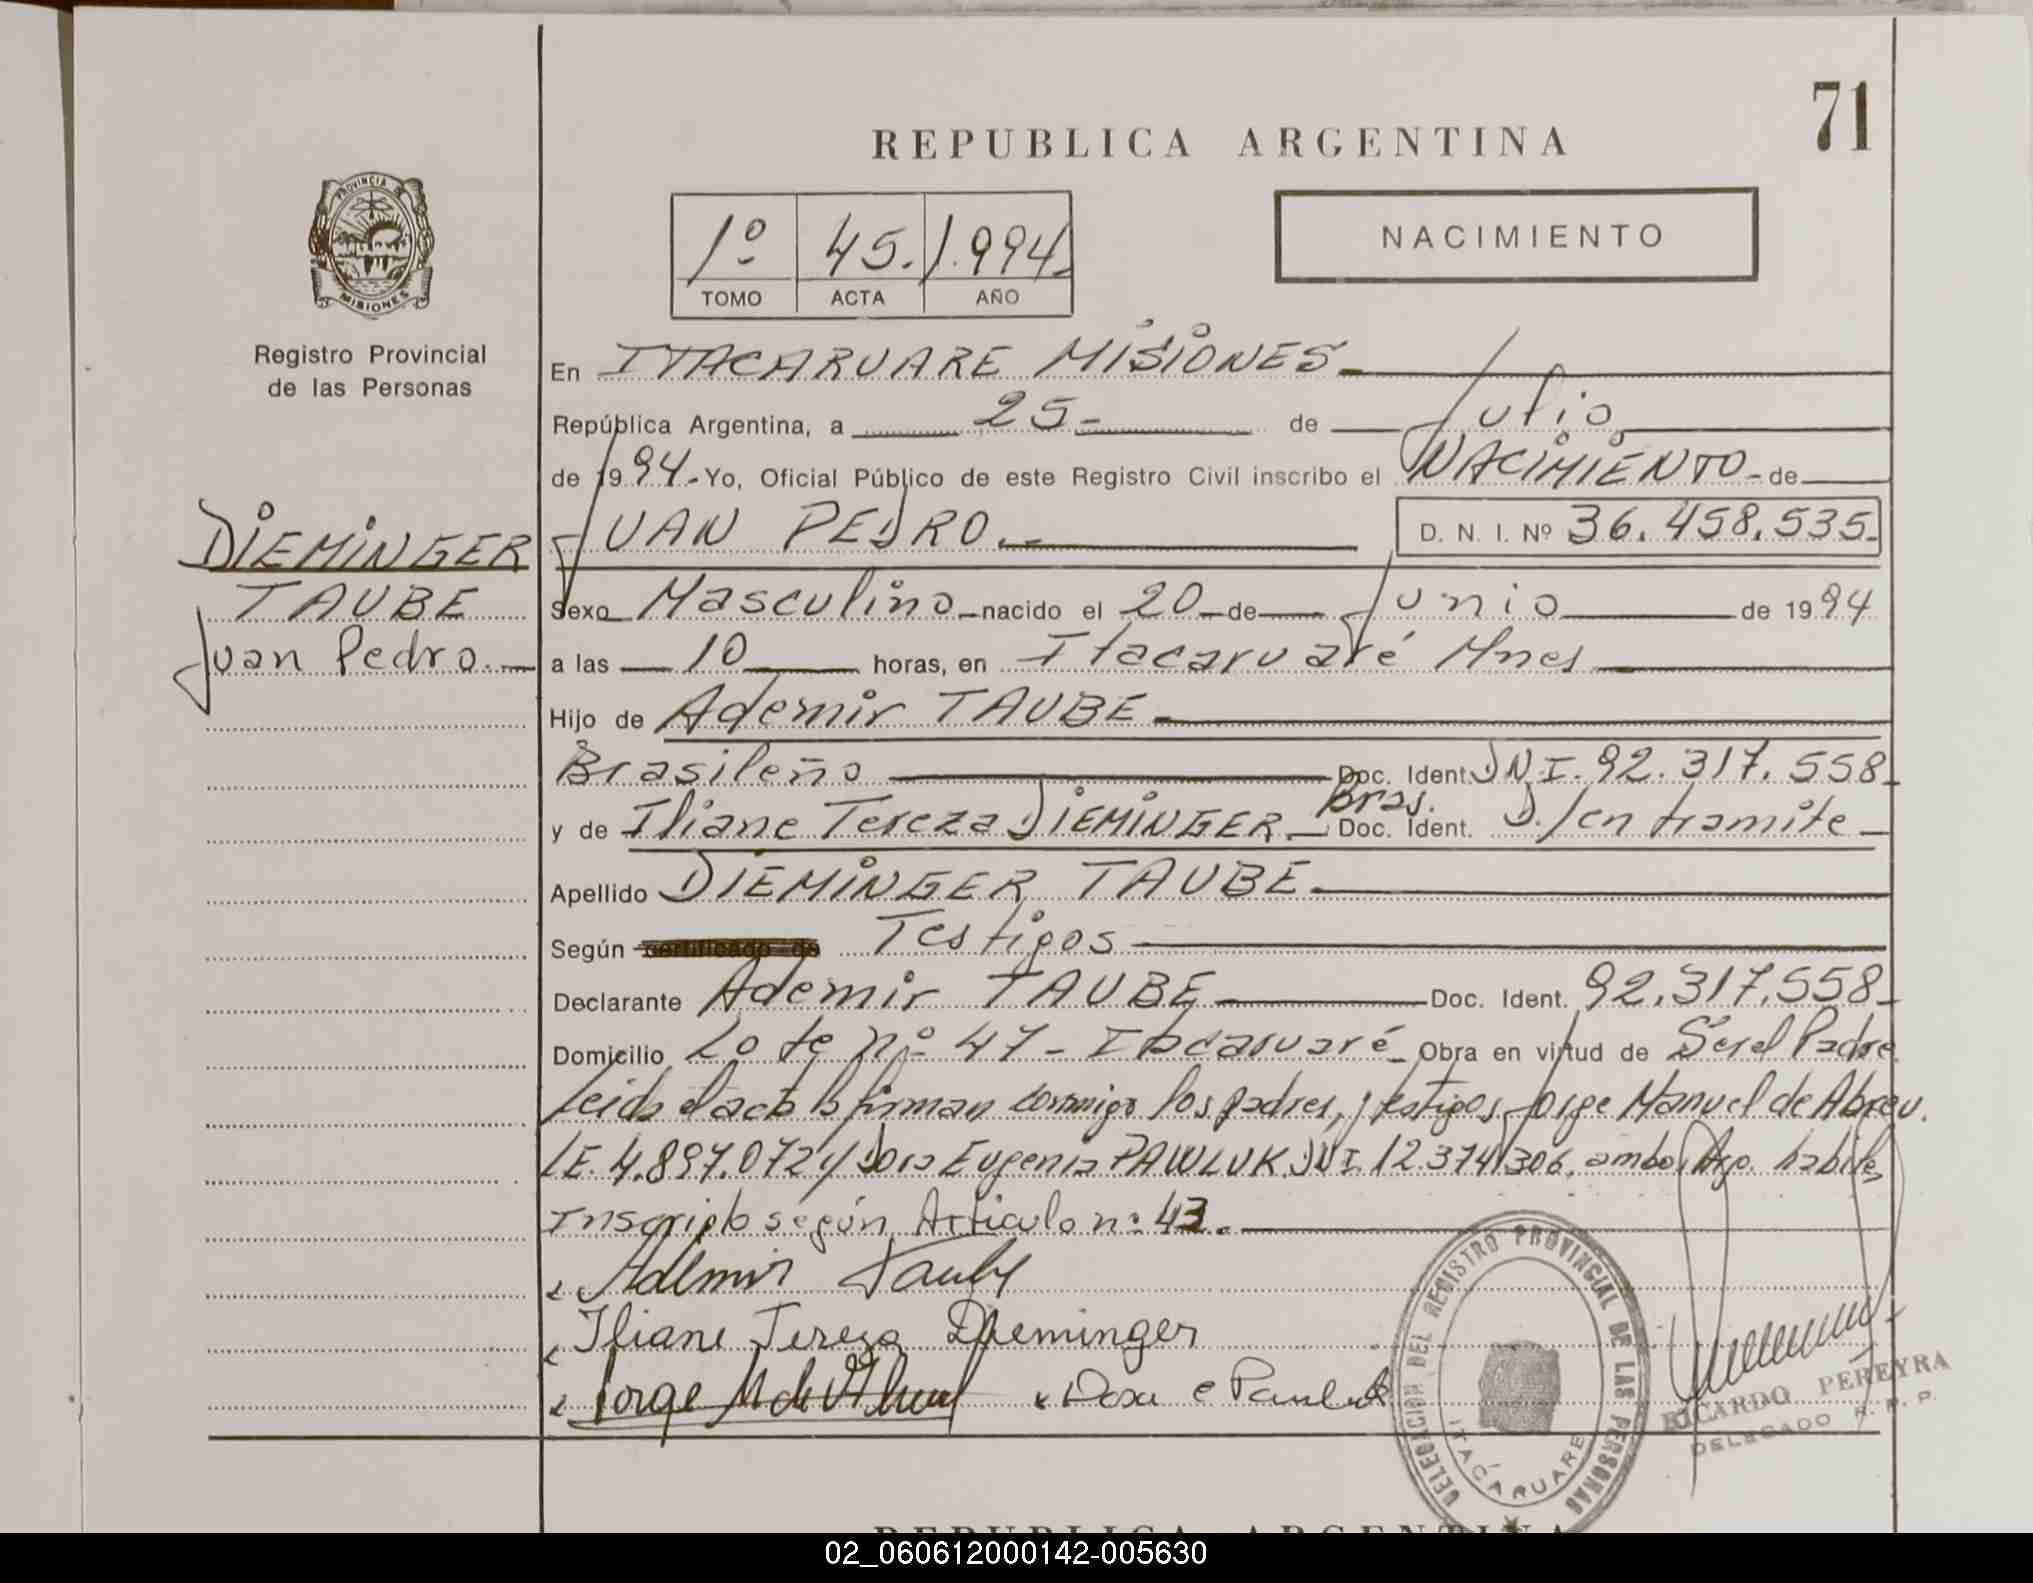 71
REPUBLICA ARGENTINA
PROVINCIA DE
MISIONES
Registro Provincial
de las Personas
1º 45. 1.994
TOMO ACTA AÑO
NACIMIENTO
En ITACARUARE MISIONES
República Argentina, a 25 de Julio
de 1994. Yo, Oficial Público de este Registro Civil inscribo el NACIMIENTO de
JUAN PEDRO. D. N. I. Nº 36.458.535
DIEMINGER
TAUBE
Juan Pedro.
Sexo Masculino nacido el 20 de Junio de 1994
a las 10 horas, en Itacaruaré Mnes
Hijo de Ademir TAUBE
Brasileño Doc. Ident. DNI. 92.317.558
y de Iliane Tereza DIEMINGER Bras. Doc. Ident. D./en tramite
Apellido DIEMINGER TAUBE
Según certificado de Testigos
Declarante Ademir TAUBE Doc. Ident. 92.317.558
Domicilio Lote nº 47 - Itacaruaré Obra en virtud de Ser el Padre
Leida el acta la firman conmigo los padres, y testigos Jorge Manuel de Abreu.
LE. 4.897.072 y Dora Eugenia PAWLUK DNI 12.374.306. ambos Arg. habiles
Inscripto según Articulo nº 43.
Ademir Taube
Iliane Tereza Dieminger
Jorge M de Abreu Dora e Pawluk
DELEGACION DEL REGISTRO PROVINCIAL DE LAS PERSONAS
ITACARUARE
RICARDO PEREYRA
DELEGADO R. P. P.
REPUBLICA ARGENTINA
02_060612000142-005630